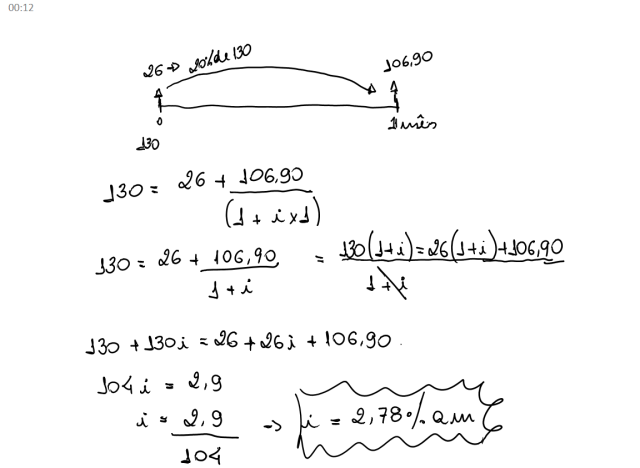 00:12
26 → 20% de 130
106,90
0
1 mês
130
130 = 26 + 106,90 / (1 + i x 1)
130 = 26 + 106,90 / 1 + i = 130(1+i) = 26(1+i) + 106,90 / 1 + i
130 + 130i = 26 + 26i + 106,90.
104i = 2,9
i = 2,9 / 104 → i = 2,78% a.m